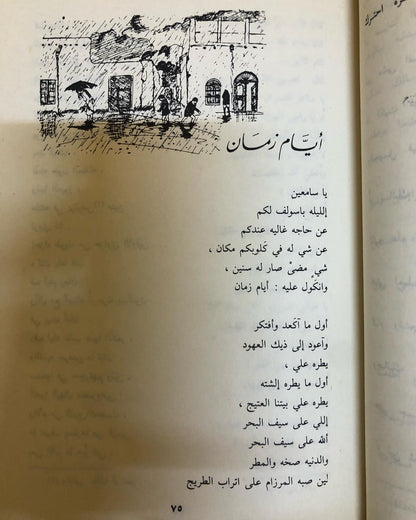 أيَّام زمَان
يا سامعين
إلليله باسولف لكم
عن حاجه غاليه عندكم
عن شي له في كلوبكم مكان ،
شيٍ مضىْ صار له سنين ،
وانكول عليه : أيام زمان
أول ما آكعد وأفتكر
وآعود إلى ذيك العهود
يطره علي ،
أول ما يطره إلشته
يطره علي بيتنا العتيج ،
إللي على سيف البحر
ألله على سيف البحر
والدنيه صخه والمطر
لين صبه المرزام على اتراب الطريج
٧٥